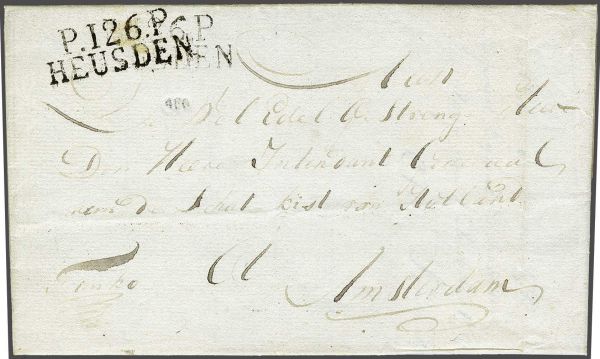 P.126.P.
HEUSDEN
6.P
DEN
Aan
Wel Edel Gestreng Heer
Den Heere Intendant Generaal
van de Schat kist van Holland
Franko
Amsterdam